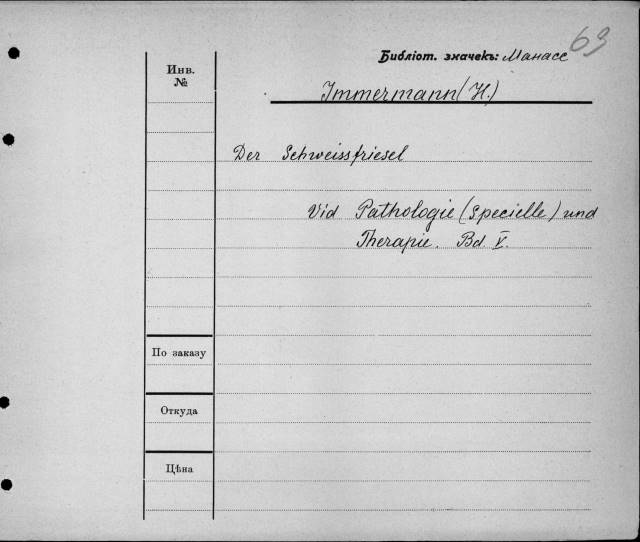 69
Библіот. значекъ: Манасс
Инв.
№
Immermann (H.)
Der Schweissfriesel
Vid Pathologie (Specielle) und
Therapie. Bd V.
По заказу
Откуда
Цѣна